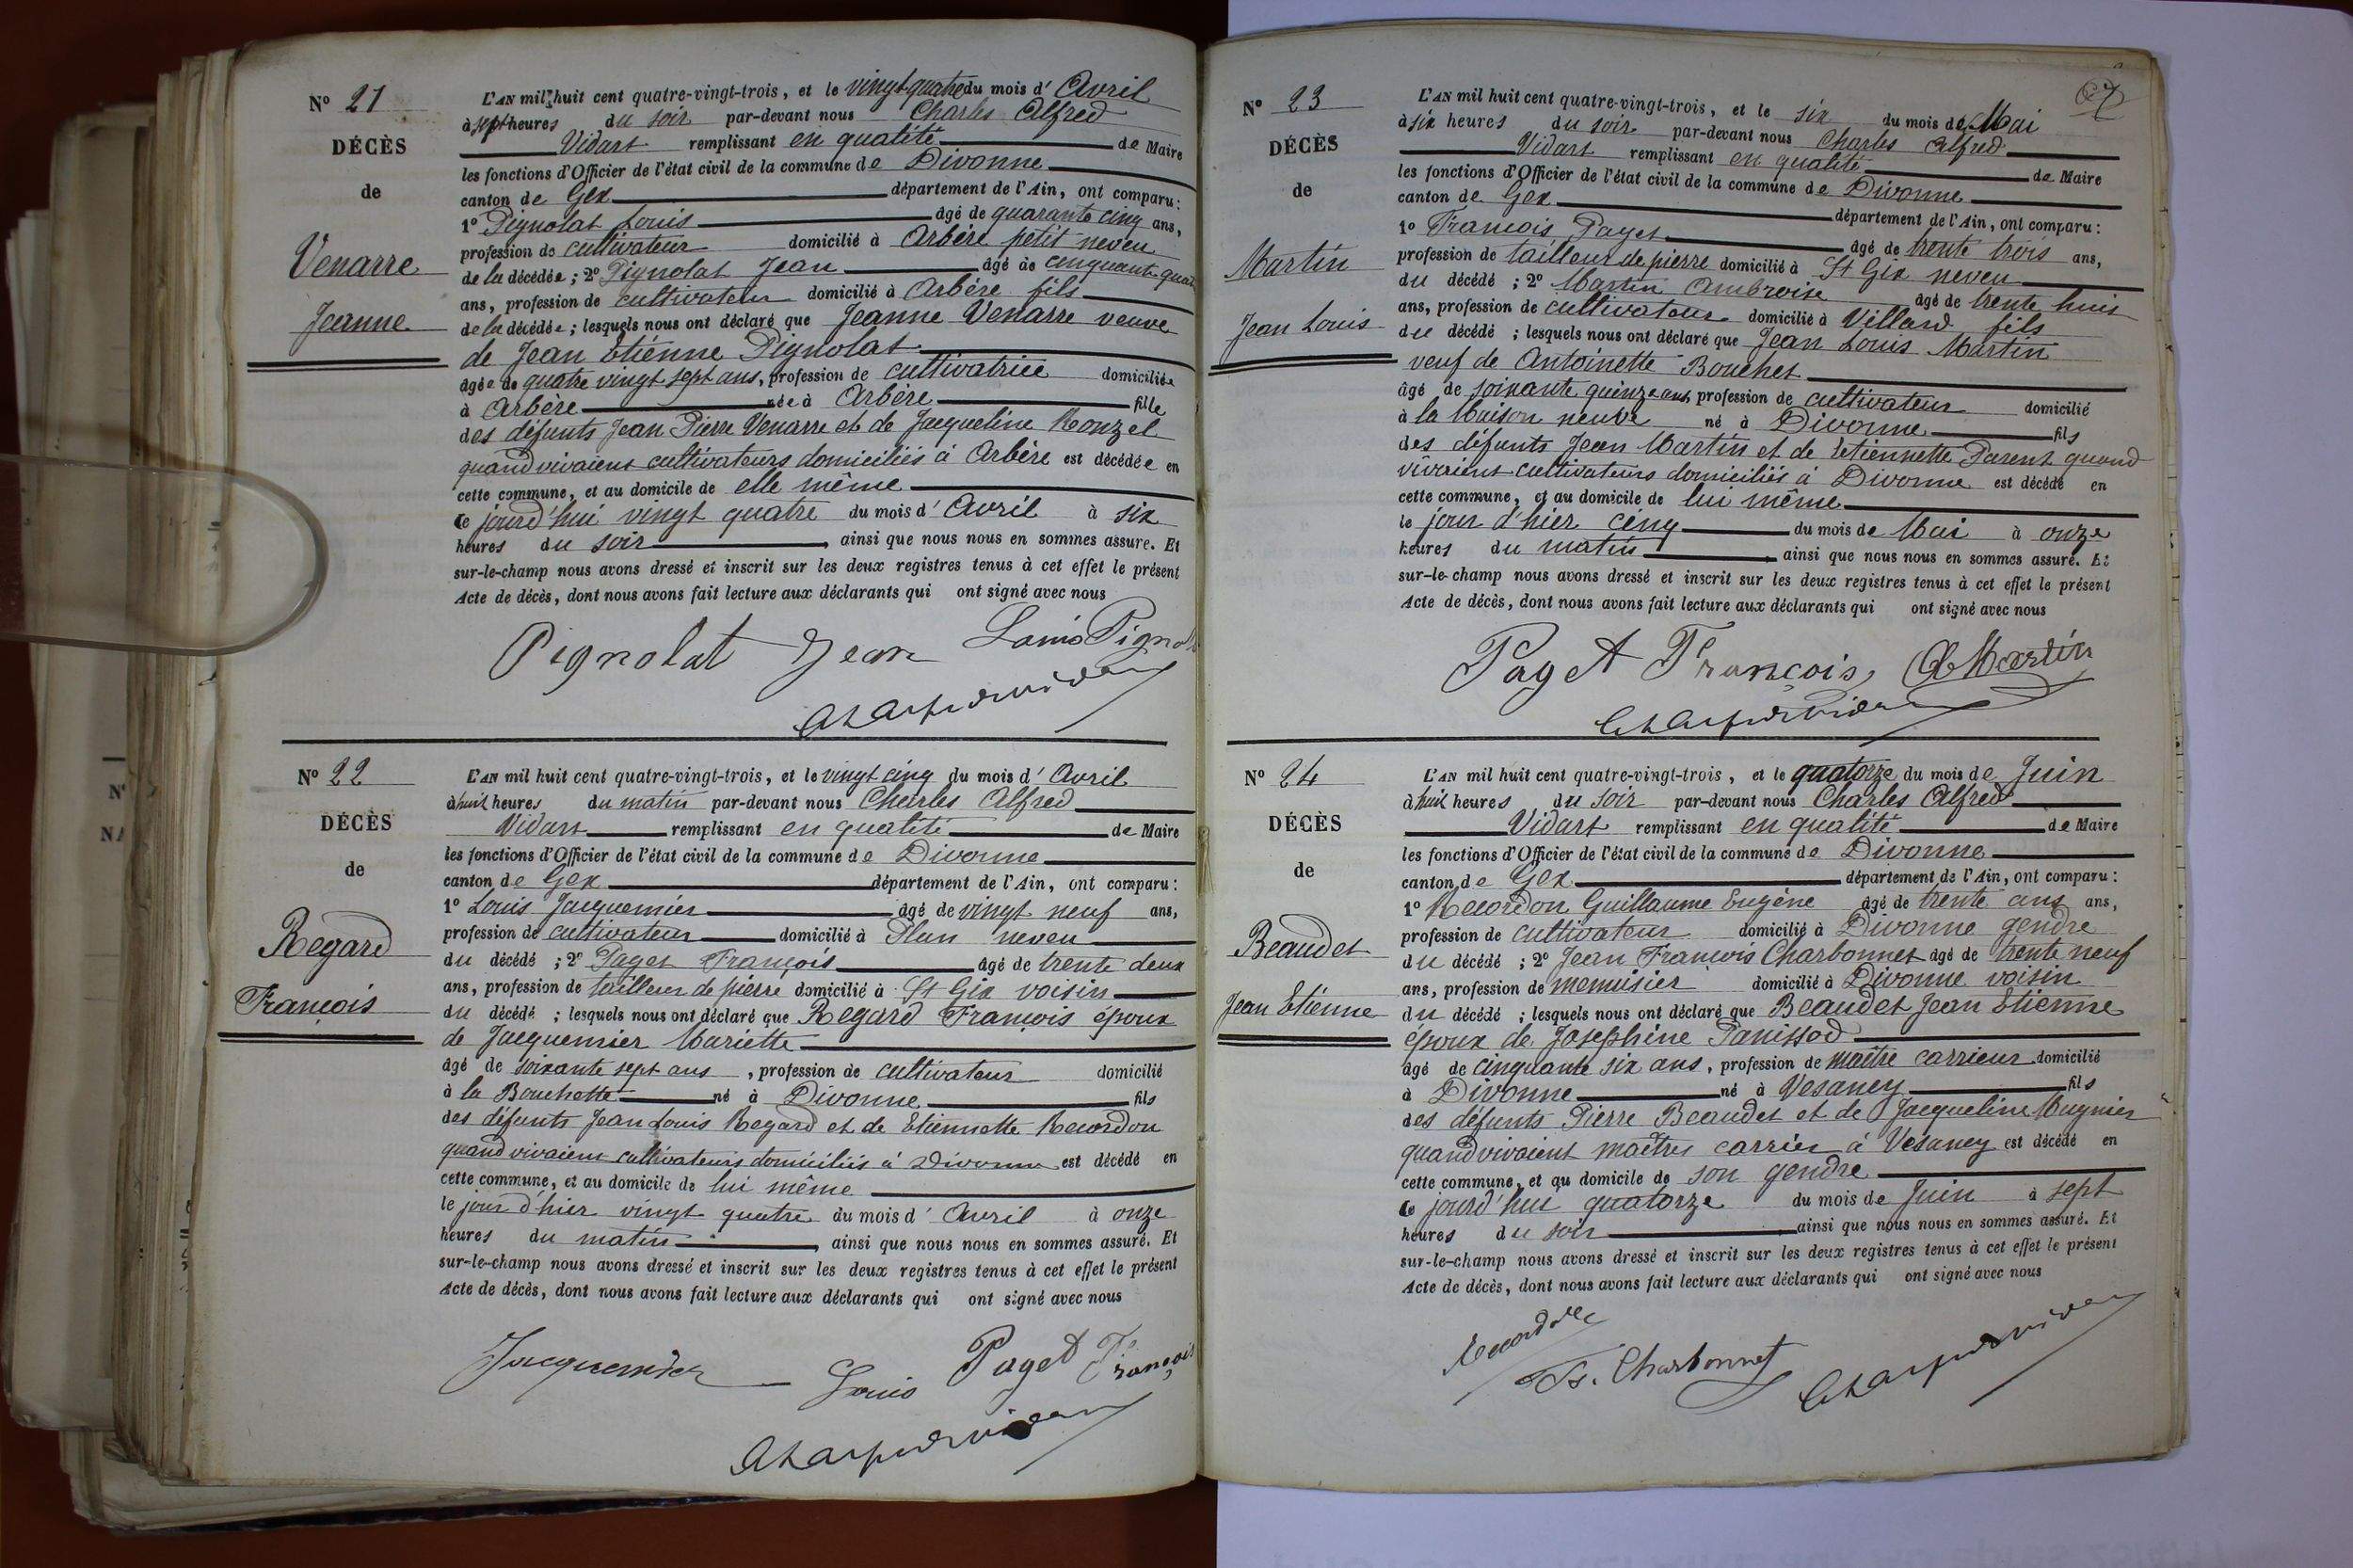 N° 21
DÉCÈS
de
Venarre
Jeanne
L'AN mil huit cent quatre-vingt-trois, et le vingt quatre du mois d'Avril
à sept heures du soir par-devant nous Charles Alfred
Vidart remplissant en qualité de Maire
les fonctions d'Officier de l'état civil de la commune de Divonne
canton de Gex département de l'Ain, ont comparu :
1° Pignolat Louis âgé de quarante cinq ans,
profession de cultivateur domicilié à Arbère petit neveu
de la décédée ; 2° Pignolat Jean âgé de cinquante quat
ans, profession de cultivateur domicilié à Arbère fils
de la décédée ; lesquels nous ont déclaré que Jeanne Venarre veuve
de Jean Etienne Pignolat
âgée de quatre vingt sept ans, profession de cultivatrice domiciliée
à Arbère née à Arbère fille
des défunts Jean Pierre Venarre et de Jacqueline
quand vivaient cultivateurs domiciliés à Arbère est décédée en
cette commune, et au domicile de elle même
ce jourd'hui vingt quatre du mois d'Avril à six
heures du soir , ainsi que nous nous en sommes assuré. Et
sur-le-champ nous avons dressé et inscrit sur les deux registres tenus à cet effet le présent
Acte de décès, dont nous avons fait lecture aux déclarants qui ont signé avec nous
Pignolat Jean Louis Pignol
N° 22
DÉCÈS
de
Regard
François
L'AN mil huit cent quatre-vingt-trois, et le vingt cinq du mois d'Avril
à huit heures du matin par-devant nous Charles Alfred
Vidart remplissant en qualité de Maire
les fonctions d'Officier de l'état civil de la commune de Divonne
canton de Gex département de l'Ain, ont comparu :
1° Louis Jacquemier âgé de vingt neuf ans,
profession de cultivateur domicilié à Plan neveu
du décédé ; 2° Paget François âgé de trente deux
ans, profession de tailleur de pierre domicilié à St Gix voisin
du décédé ; lesquels nous ont déclaré que Regard François époux
de Jacquemier Mariette
âgé de soixante sept ans , profession de cultivateur domicilié
à la Bouchette né à Divonne fils
des défunts Jean Louis Regard et de Etiennette Recordon
quand vivaient cultivateurs domiciliés à Divonne est décédé en
cette commune, et au domicile de lui même
le jour d'hier vingt quatre du mois d'Avril à onze
heures du matin , ainsi que nous nous en sommes assuré. Et
sur-le-champ nous avons dressé et inscrit sur les deux registres tenus à cet effet le présent
Acte de décès, dont nous avons fait lecture aux déclarants qui ont signé avec nous
Jacquemier Louis Paget François
67
N° 23
DÉCÈS
de
Martin
Jean Louis
L'AN mil huit cent quatre-vingt-trois, et le six du mois de Mai
à six heures du soir par-devant nous Charles Alfred
Vidart remplissant en qualité de Maire
les fonctions d'Officier de l'état civil de la commune de Divonne
canton de Gex département de l'Ain, ont comparu :
1° François Paget âgé de trente trois ans,
profession de tailleur de pierre domicilié à St Gix neveu
du décédé ; 2° Martin Ambroise âgé de trente huit
ans, profession de cultivateur domicilié à Villard fils
du décédé ; lesquels nous ont déclaré que Jean Louis Martin
veuf de Antoinette Bouchet
âgé de soixante quinze ans, profession de cultivateur domicilié
à la Maison neuve né à Divonne fils
des défunts Jean Martin et de Etiennette Parent quand
vivaient cultivateurs domiciliés à Divonne est décédé en
cette commune, et au domicile de lui même
le jour d'hier cinq du mois de Mai à onze
heures du matin , ainsi que nous nous en sommes assuré. Et
sur-le-champ nous avons dressé et inscrit sur les deux registres tenus à cet effet le présent
Acte de décès, dont nous avons fait lecture aux déclarants qui ont signé avec nous
Paget François, A Martin
N° 24
DÉCÈS
de
Beaudet
Jean Etienne
L'AN mil huit cent quatre-vingt-trois, et le quatorze du mois de Juin
à huit heures du soir par-devant nous Charles Alfred
Vidart remplissant en qualité de Maire
les fonctions d'Officier de l'état civil de la commune de Divonne
canton de Gex département de l'Ain, ont comparu :
1° Recordon Guillaume Eugène âgé de trente ans ans,
profession de cultivateur domicilié à Divonne gendre
du décédé ; 2° Jean François Charbonnet âgé de trente neuf
ans, profession de menuisier domicilié à Divonne voisin
du décédé ; lesquels nous ont déclaré que Beaudet Jean Etienne
époux de Josephine Panissod
âgé de cinquante six ans, profession de maître carrieur domicilié
à Divonne né à Vesancy fils
des défunts Pierre Beaudet et de Jacqueline Mugnier
quand vivaient maîtres carrier à Vesancy est décédé en
cette commune, et au domicile de son gendre
ce jourd'hui quatorze du mois de Juin à sept
heures du soir , ainsi que nous nous en sommes assuré. Et
sur-le-champ nous avons dressé et inscrit sur les deux registres tenus à cet effet le présent
Acte de décès, dont nous avons fait lecture aux déclarants qui ont signé avec nous
Fs. Charbonnet